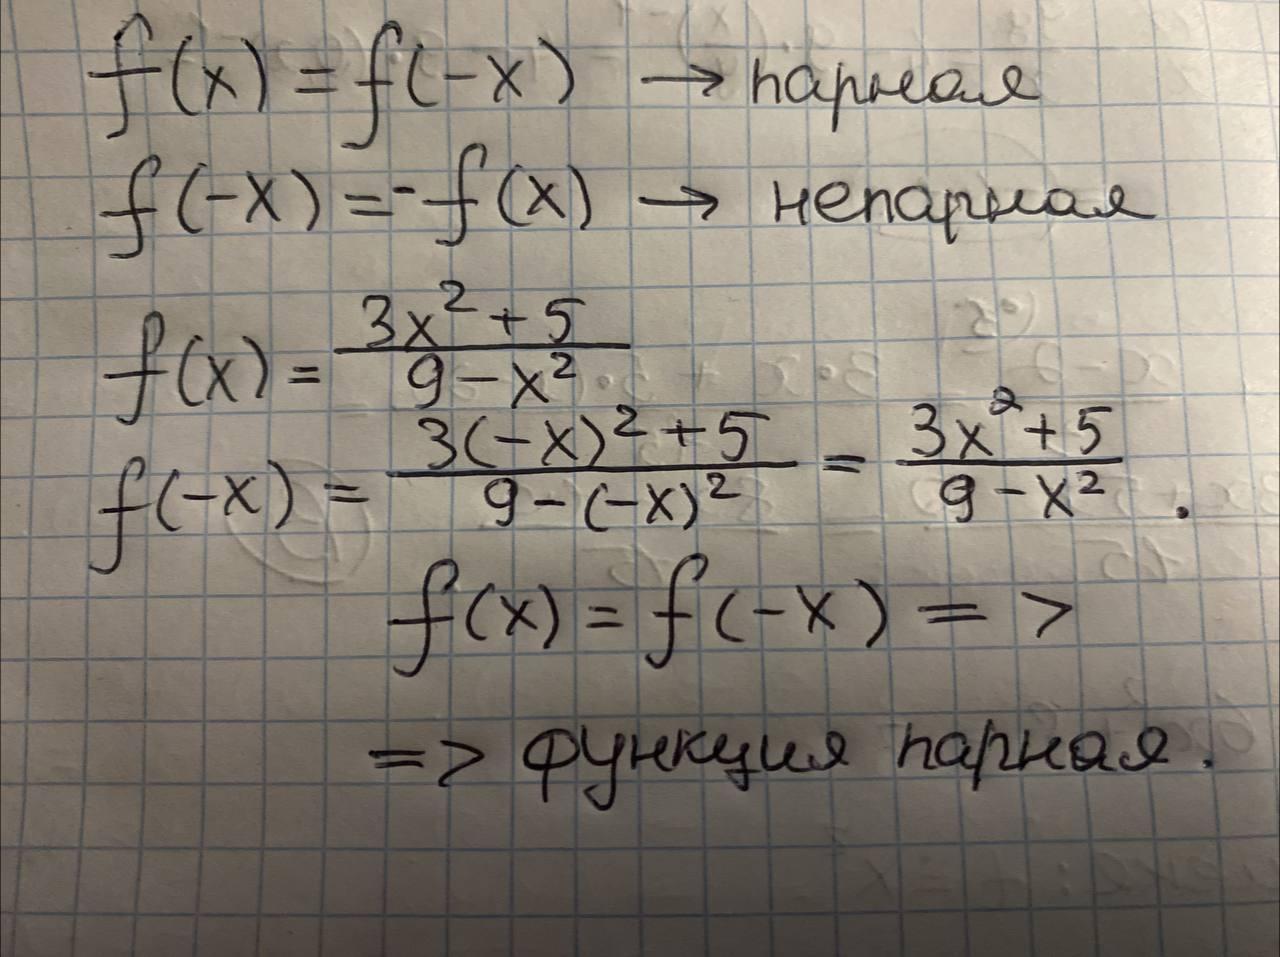 f(x) = f(-x) → парная
f(-x) = -f(x) → непарная
f(x) = (3x² + 5)/(9 - x²)
f(-x) = (3(-x)² + 5)/(9 - (-x)²) = (3x² + 5)/(9 - x²) .
f(x) = f(-x) =>
=> функция парная.